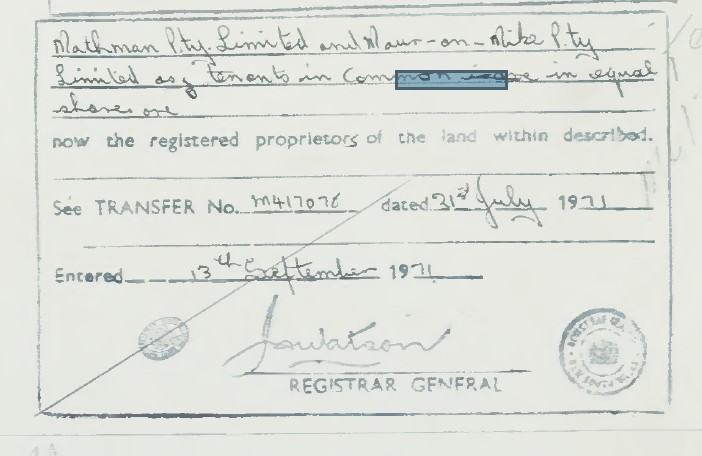 Mathman P.ty. Limited and Maur-on-Mike P.ty
Limited as tenants in Common in equal
shares are
now the registered proprietors of the land within described.
See TRANSFER No. M417076 dated 31st July 1971
Entered 13th September 1971
J Watson
REGISTRAR GENERAL